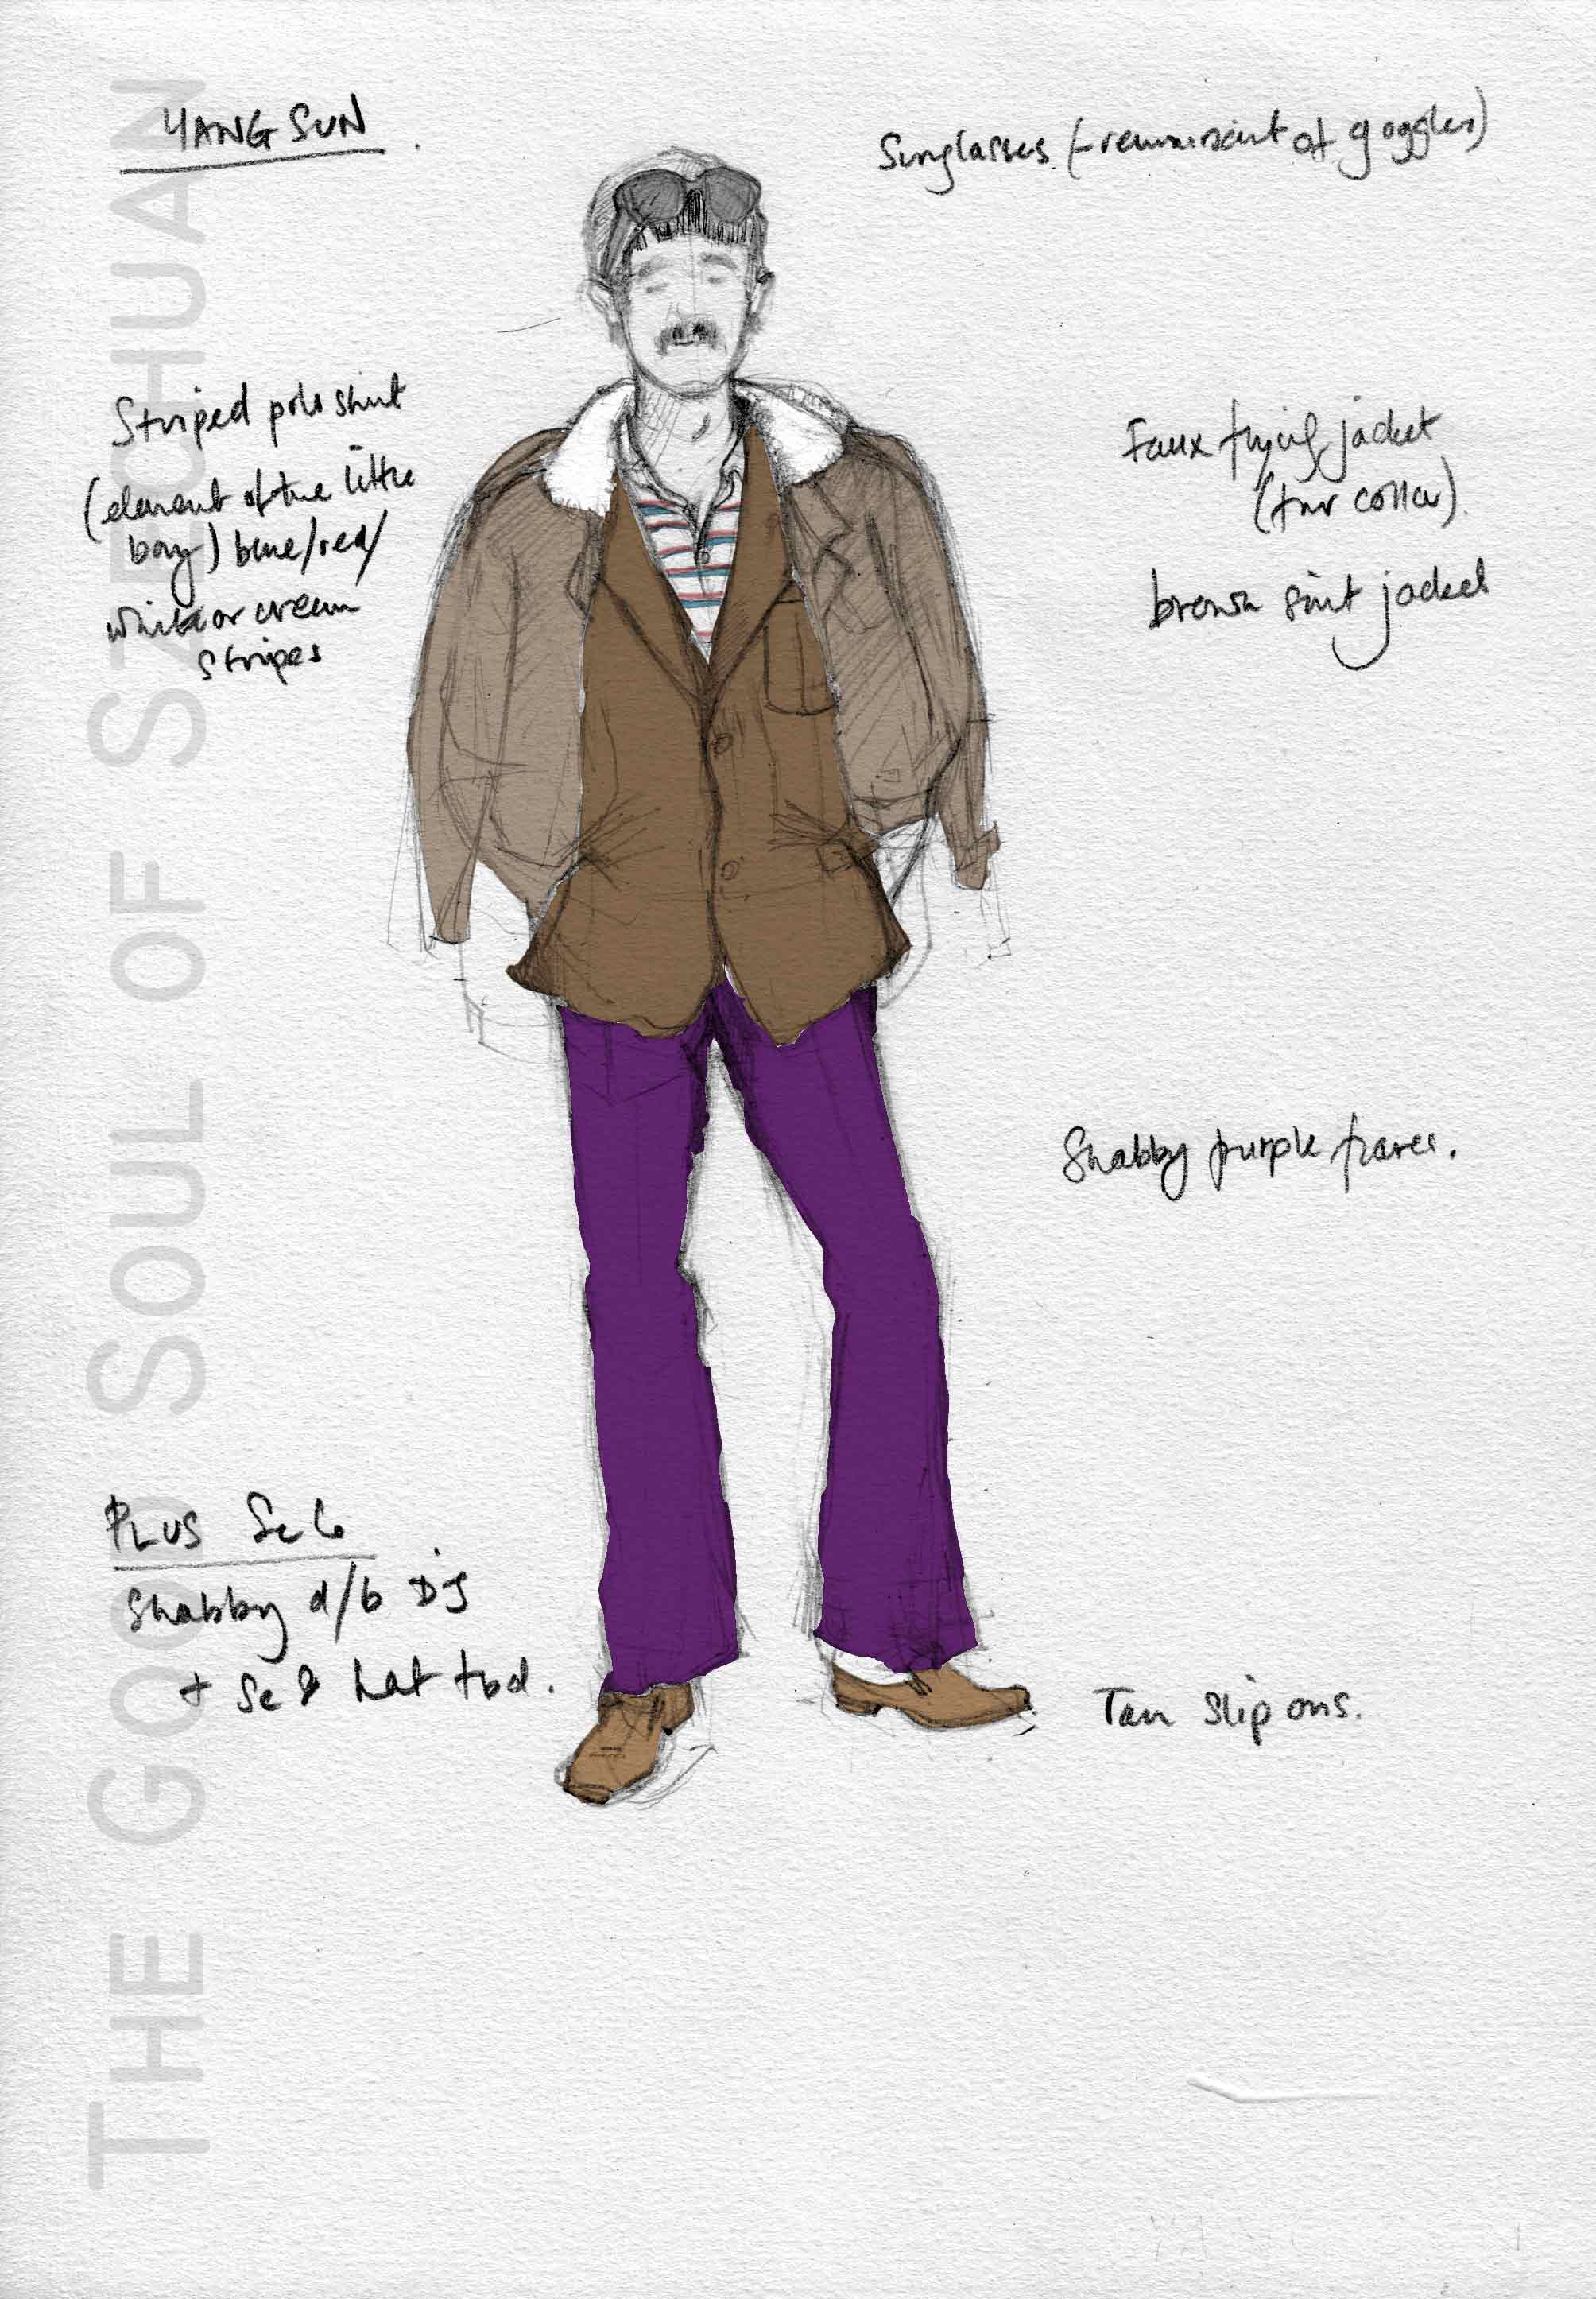 YANG SUN.
Sunglasses (-reminiscent of goggles)
Striped polo shirt
(element of the little
boy) blue/red/
white or cream
stripes
Faux flying jacket
(fur collar).
brown suit jacket
Shabby purple flares.
PLUS Sc 6
Shabby d/b DJ
+ Sc 8 hat tbd.
Tan slip ons.
THE GOOD SOUL OF SZECHUAN